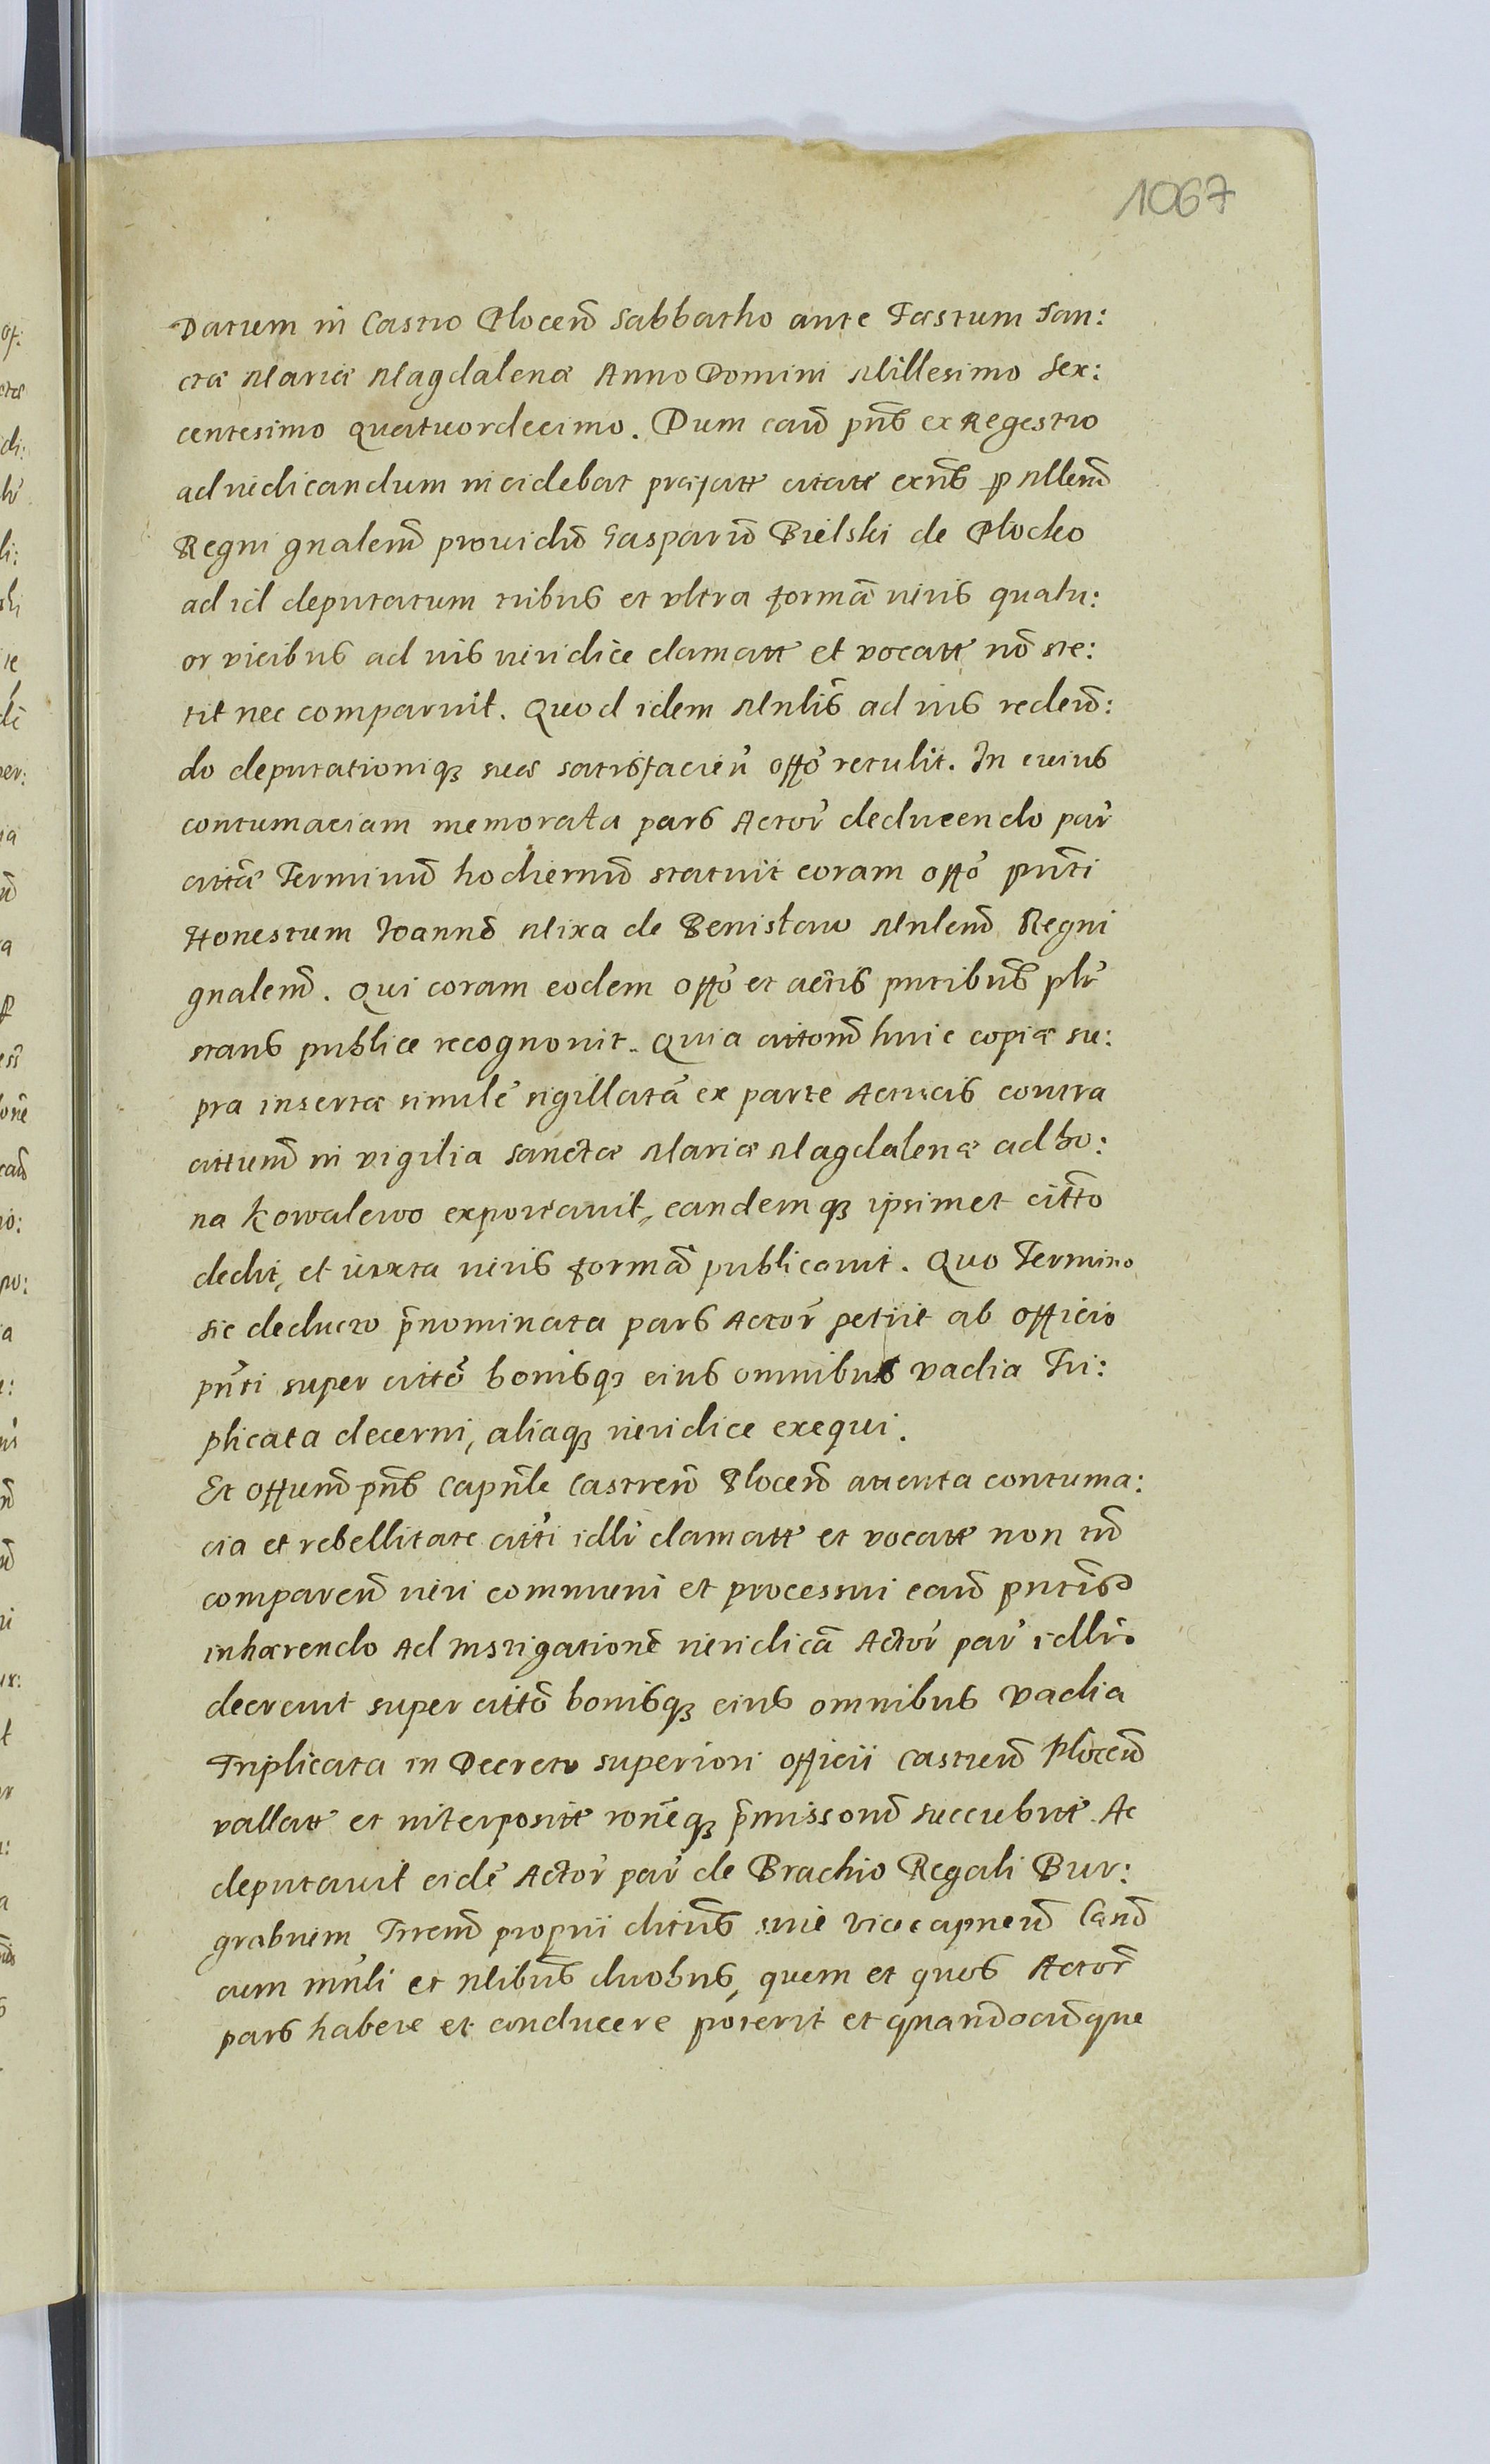 1067
Datum in Castro Plocen̄ Sabbatho ante Fæstum San:
ctæ Mariæ Magdalenæ Anno Domini Millesimo Sex:
centesimo quatuordecimo. Dum cau͂ pn̄s ex Regestro
ad iudicandum incidebat præfatt citatt exn̄s ꝑ Mllem̄
Regni gnalem̄ prouidū Gasparū Bielski de Plocko
ad id deputatum tribus et vltra formā iuris quatu:
or vicibus ad ius iuridice clamatt et vocatt nō ste:
tit nec comparuit. Quod idem Mnlis̄ ad ius redeūn:
do deputationiqꝫ suæ satisfacieñ offo retulit. In cuius
contumaciam memorata pars Actor̃ deducendo par̃
cittæ Terminū hodiernū statuit coram offo pn̄ti
Honestum Joannē Mixa de Benisław Mnlem̄ Regni
gnalem̄. Qui coram eodem offo et actis pn̄tibus plr̃
stans publice recognouit. Quia cittonē huic copiæ su:
pra insertæ similē sigillatā ex parte Actricis contra
cittum in vigilia Sanctæ Mariæ Magdalenæ ad bo:
na Kowalewo exportauit, eandemqꝫ ipsimet citto
dedit, et iuxta iuris formā publicauit. Quo Termino
sic deducto p̄nominata pars Actor̃ petiit ab officio
pn̄ti super citto bonisqꝫ eius omnibus vadia Tri:
plicata decerni, aliaqꝫ iuridice exequi.
Et offum pn̄s Capn̄le Castren̄ Plocen̄ attenta contuma:
cia et rebellitate citti idlr̃ clamatt et vocatt non tn̄
comparen̄ iuri communi et processui cau͂ pn̄tis
inhærendo Ad instigationē iuridicā Actor̃ par̃ idlr̃
decreuit super citto bonisqꝫ eius omnibus vadia
Triplicata in Decreto superiori officii Castren̄ Plocen̄
vallatt et interposit rōneqꝫ p̄missorū succubit. Ac
deputauit eidē Actor̃ par̃ de Brachio Regali Bur:
grabium Trrem̄ proprii vicecapneū
cum mnli et Nlibus duobus, quem et quos Actor̃
pars habere et conducere poterit et quandocūnque